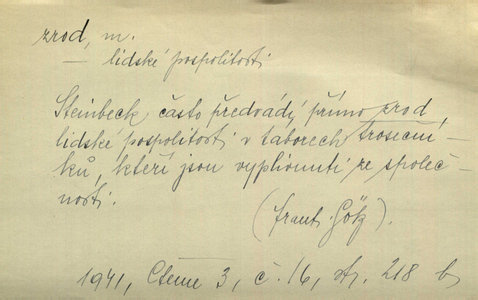 zrod, m.
— lidské pospolitosti
Steinbeck často předvádí přímo zrod
lidské pospolitosti v táborech trosečni-
ků, kteří jsou vyplivnuti ze společ-
nosti.
(Frant. Götz).
1941, Čteme 3, č. 16, str. 218 b